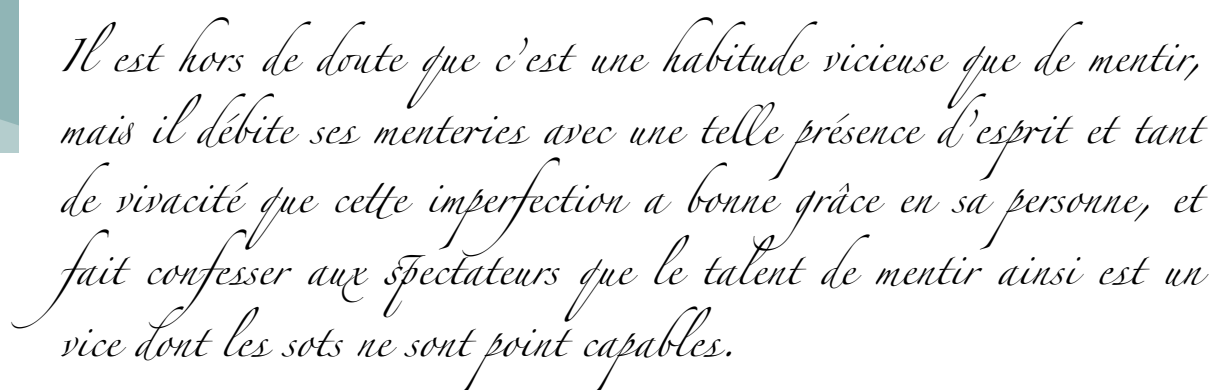 Il est hors de doute que c’est une habitude vicieuse que de mentir,
mais il débite ses menteries avec une telle présence d’esprit et tant
de vivacité que cette imperfection a bonne grâce en sa personne, et
fait confesser aux spectateurs que le talent de mentir ainsi est un
vice dont les sots ne sont point capables.